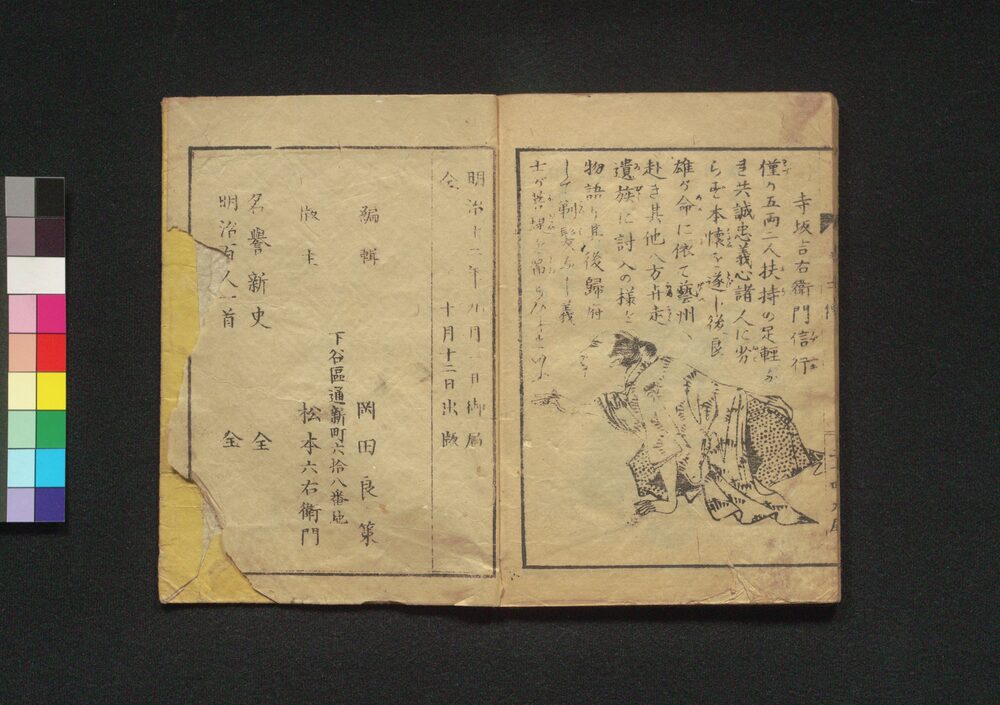 寺坂吉右衛門信行
僅か五両二人扶持の足軽な
き共誠忠義心諸人に劣
らず本懐を遂し後良
雄が命に依て藝州
赴き其他八方奔走
遺族に討入の様を
物語り其後歸府
して剃髪なし義
士が
明治十二年九月 日御届
仝 十月十二日出版
編輯 岡田良策
下谷區通新町六拾八番地
版主 松本六右衛門
名譽新史 全
明治百人一首 全